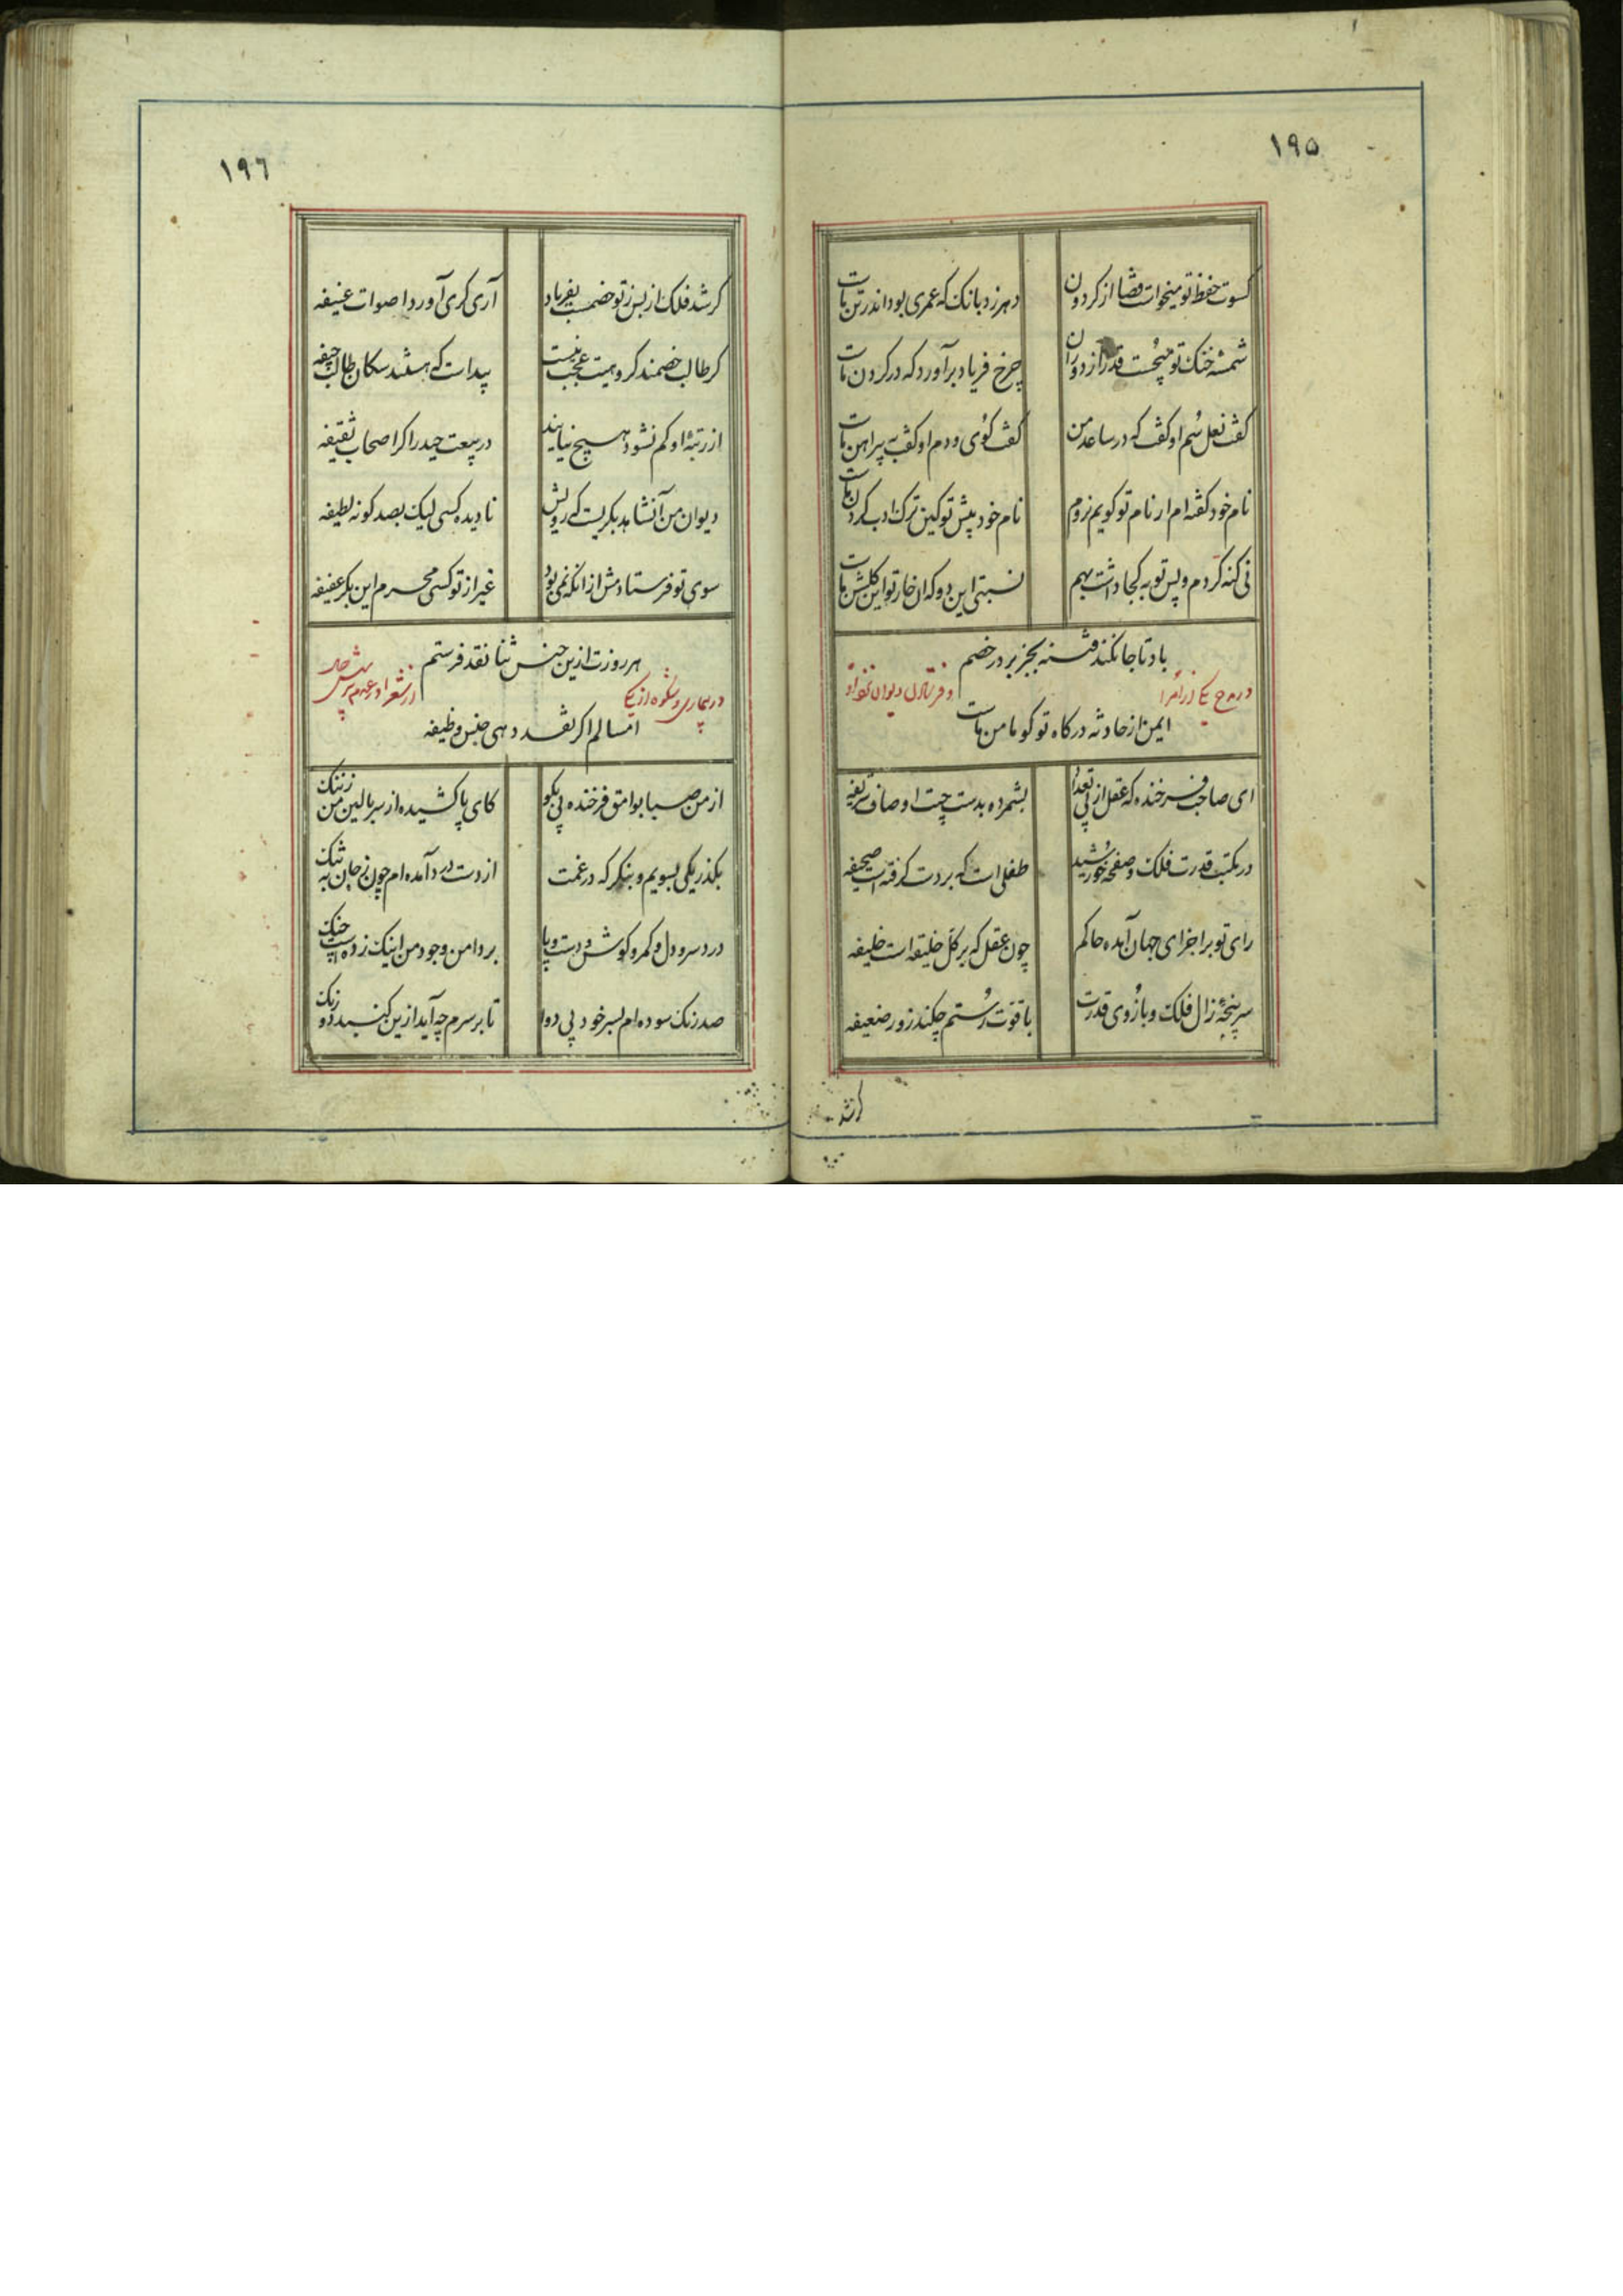 ۱۹۵
کسوت حفظ تو میخواست قضا از کردون
دهر زد بانک که عمری بود اندر تن ماست
شمسهٔ خنک تو میجست قدر از دوران
چرخ فریاد برآورد که در کردن ماست
کفت نعل سم او کف که در ساعد من
کفت کوی و دم او کفت به پیراهن ماست
نام خود کفته ام ار نام تو کویم نه زوم
نام خود پیش تو کین ترک ادب کردن ماست
نی کنه کردم و پس تو به کجا داشت بهم
نسبتی این دو که ان خار تو این کلشن ماست
باد تا جا نکند فتنه بجز بر در خصم
در مدح یکی از امرا
و فرستادن دیوان نزد او
ایمن از حادثه درکاه تو کو مامن ماست
ای صاحب فرخنده که عقل از پی تعداد
بشمرده بدست چپت اوصاف شریفه
در مکتب قدرت فلک و صفحه خورشید
طفلی است که بر دست کرفته است صحیفه
رای تو بر اجزای جهان آمده حاکم
چون عقل که بر کل خلیقه است خلیفه
سر پنجهٔ زال فلک و بازوی قدرت
با قوت رستم چکند زور ضعیفه
کر شد
۱۹۶
کر شد فلک از بس ز تو خصمت بفریاد
آری کری آورد اصوات عنیفه
کر طالب خصمند کروهیت عجب نیست
پیداست که هستند سکان طالب جیفه
از رتبهٔ او کم نشود هیچ نیایند
در بیعت حیدر اکر اصحاب ثقیفه
دیوان من آن شاهد بکریست که رویش
نادیده کسی لیک بصد کونه لطیفه
سوی تو فرستادمش از آنکه نمی بود
غیر از تو کسی محرم این بکر عفیفه
هر روزت ازین جنس ثنا نقد فرستم
در بیماری و شکوه از یکی
از شعرا
امسالم اکر نقد دهی جنس وظیفه
از من صبا بوامق فرخنده پی بکو
کای پا کشیده از سر بالین من ز ننک
بکذر یکی بسویم و بنکر که در غمت
از دست درد آمده ام چون ز جان به تنک
درد سر و دل و کمر و کوش و دست و پا
بر دامن وجود من اینک زده است چنک
صد رنک سوده ام بسر خود پی دوا
تا بر سرم چه آید ازین کنبد دو رنک